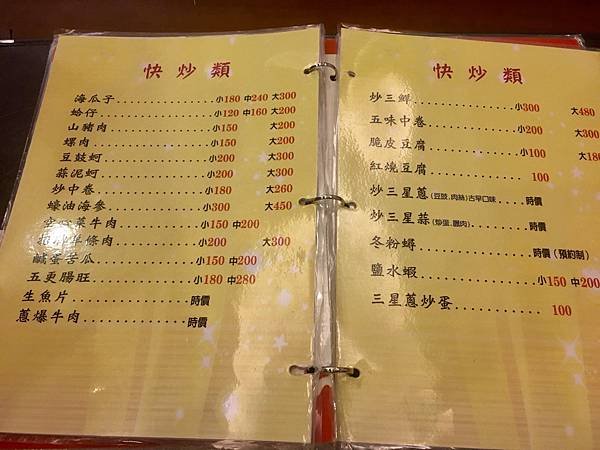 快炒類
海瓜子 小180 中240 大300
蛤仔 小120 中160 大200
山豬肉 小150 大200
螺肉 小150 大200
豆鼓蚵 小200 大300
蒜泥蚵 小200 大300
炒中卷 小180 大260
蠔油海參 小300 大450
空心菜牛肉 小150 中200
羊條肉 小200 大300
鹹蛋苦瓜 小150 中200
五更腸旺 小180 中280
生魚片 時價
蔥爆牛肉 時價
快炒類
炒三鮮 小300 大480
五味中卷 小200 大300
脆皮豆腐 小100 大180
紅燒豆腐 100
炒三星蔥(豆鼓.肉絲)古早口味 時價
炒三星蒜(炒蛋.臘肉) 時價
冬粉蟳 時價(預約制)
鹽水蝦 小150 中200
三星蔥炒蛋 100